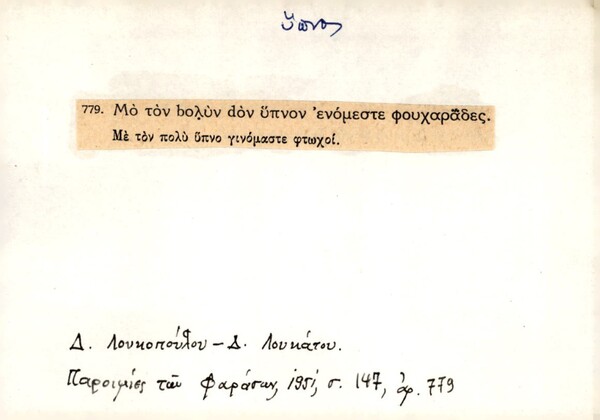 ὕπνος
779. Μὸ τὸν bολὺν dὸν ὕπνον ᾿ενόμεστε φουχαρᾶδες.
Μὲ τὸν πολὺ ὕπνο γινόμαστε φτωχοί.
Δ. Λουκοπούλου – Δ. Λουκάτου.
Παροιμίες τῶν Φαράσων, 1951, σ. 147, ἀρ. 779